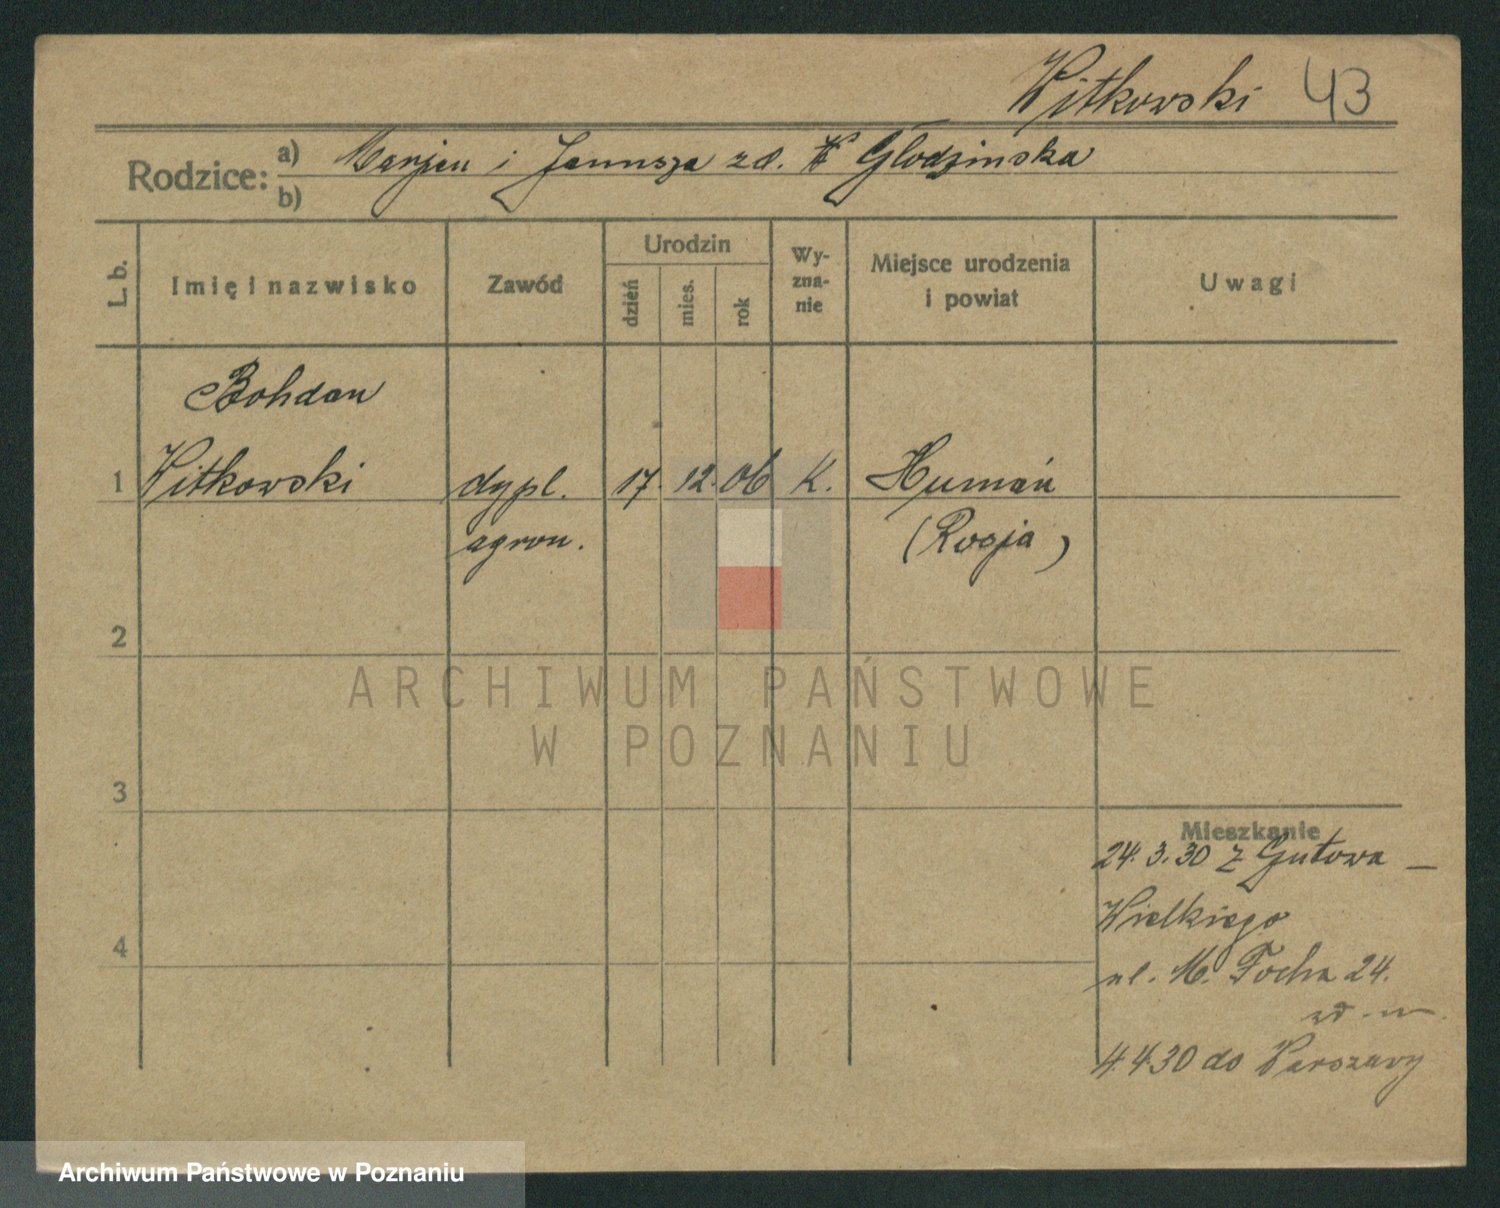 Witkowski 43
Rodzice: a) Marjan i Janusza zd. Głodzinska
b)
L. b. Imię i nazwisko Zawód Urodzin dzień mies. rok Wyznanie Miejsce urodzenia i powiat Uwagi
Bohdan
1 Witkowski dypl. 17. 12. 06 K. Humań
agron. (Rosja)
2
ARCHIWUM PAŃSTWOWE
W POZNANIU
3
Mieszkanie
24.3.30 z Gutowa —
Wielkiego
4
ul. M. Focha 24.
4.4.30 do Warszawy
Archiwum Państwowe w Poznaniu